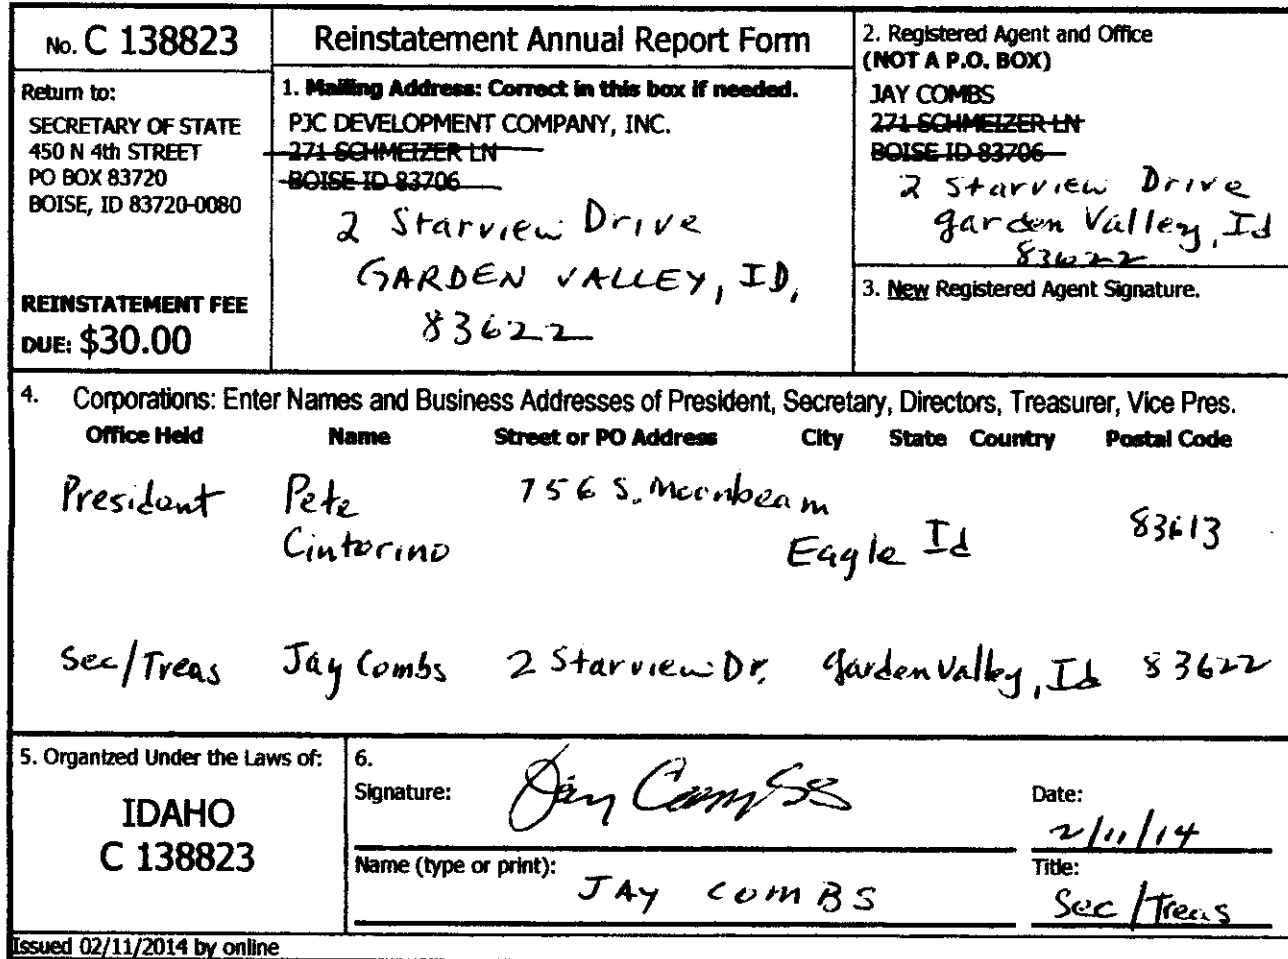 No. C 138823
Reinstatement Annual Report Form
Return to:
SECRETARY OF STATE
450 N 4th STREET
PO BOX 83720
BOISE, ID 83720-0080
REINSTATEMENT FEE
DUE: $30.00
1. Mailing Address: Correct in this box if needed.
PJC DEVELOPMENT COMPANY, INC.
271 SCHMEIZER LN
BOISE ID 83706
2 Starview Drive
GARDEN VALLEY, ID,
83622
2. Registered Agent and Office
(NOT A P.O. BOX)
JAY COMBS
271 SCHMEIZER LN
BOISE ID 83706
2 Starview Drive
garden Valley, Id
83622
3. New Registered Agent Signature.
4. Corporations: Enter Names and Business Addresses of President, Secretary, Directors, Treasurer, Vice Pres.
Office Held Name Street or PO Address City State Country Postal Code
President Pete 756 S. Moonbeam
Cintorino Eagle Id 83613
Sec/Treas Jay Combs 2 Starview Dr. Garden Valley, Id 83622
5. Organized Under the Laws of:
IDAHO
C 138823
6.
Signature: Jay Combs
Date:
2/11/14
Name (type or print):
JAY COMBS
Title:
Sec/Treas
Issued 02/11/2014 by online